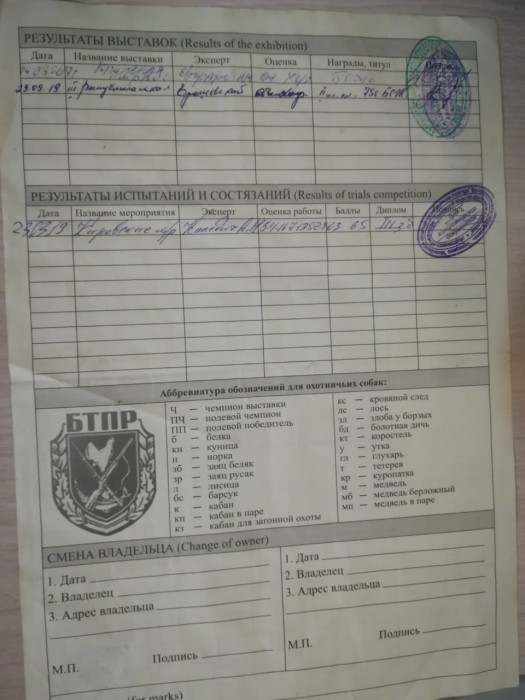 РЕЗУЛЬТАТЫ ВЫСТАВОК (Results of the exhibition)
Дата Название выставки Эксперт Оценка Награды, титул
23.09.19
РЕЗУЛЬТАТЫ ИСПЫТАНИЙ И СОСТЯЗАНИЙ (Results of trials competition)
Дата Название мероприятия Эксперт Оценка работы Баллы Диплом Подпись
65
Аббревиатура обозначений для охотничьих собак:
БТПР
Ч — чемпион выставки
ПЧ — полевой чемпион
ПП — полевой победитель
б — белка
кн — куница
н — норка
зб — заяц беляк
зр — заяц русак
л — лисица
бс — барсук
к — кабан
кп — кабан в паре
кз — кабан для загонной охоты
кс — кровяной след
лс — лось
зл — злоба у борзых
бд — болотная дичь
кт — коростель
у — утка
гл — глухарь
т — тетерев
кр — куропатка
м — медведь
мб — медведь берложный
мп — медведь в паре
СМЕНА ВЛАДЕЛЬЦА (Change of owner)
1. Дата
2. Владелец
3. Адрес владельца
Подпись
М.П.
1. Дата
2. Владелец
3. Адрес владельца
Подпись
М.П.
(for marks)